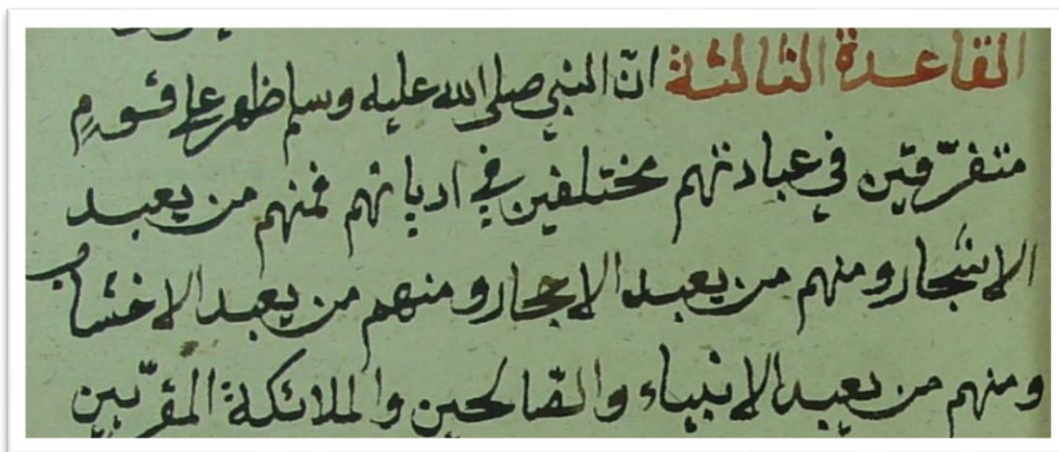 القاعدة الثالثة ان النبي صلى الله عليه وسلم ظهر على قوم
متفرّقين في عبادتهم مختلفين في اديانهم فمنهم من يعبد
الاشجار ومنهم من يعبد الاحجار ومنهم من يعبد الاخشاب
ومنهم من يعبد الانبياء والصّالحين والملائكة المقرّبين